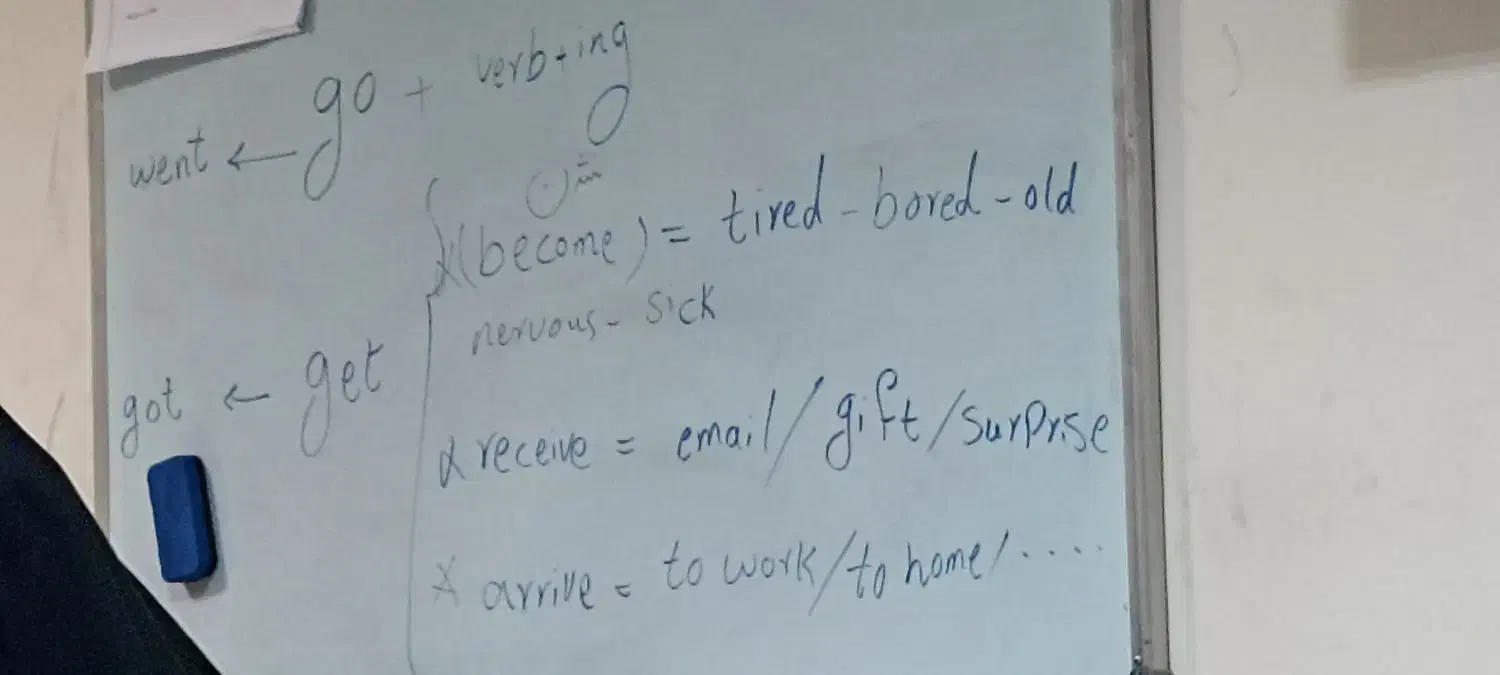 go + verb+ing
went ←
شدن
(become) = tired - bored - old
nervous - sick
got ← get
receive = email / gift / surprise
arrive = to work / to home / ....